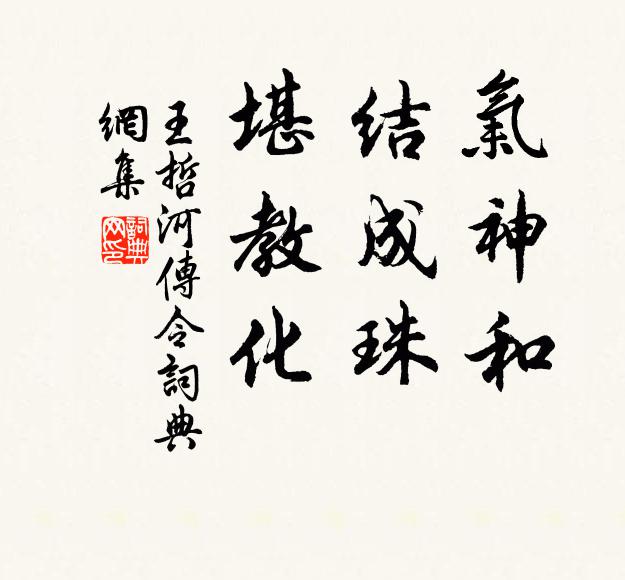 氣神和
結成珠
堪教化
王哲河傳令詞典
網集
詞典
网印